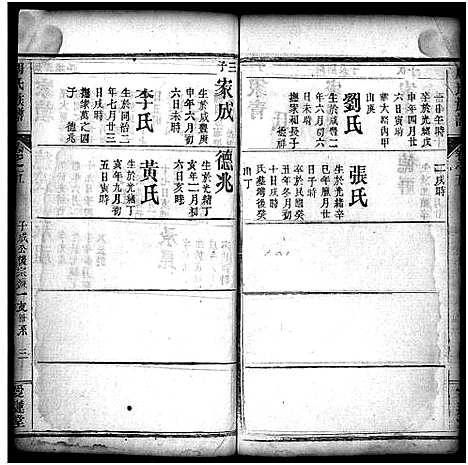 一日申時
卒於光緒戊
申年四月廿
六日寅時
葬大路內甲
山庚
劉氏
生於咸豐二
年六月初六
日未時
撫家和長子
德祥
一戌時
卒於光緒辛
巳年臘月廿
日子時
張氏
生於光緒癸
丑年冬月初
氏塋墦後癸
山丁
三子
家成
生於咸豐庚
申年六月十
六日未時
李氏
生於同治二
年七月廿三
日戌時
撫家萬之四
子 德兆
德兆
生於光緒丁
亥年二月初
六日亥時
黃氏
生於光緒丁
亥年九月初
五日寅時
子成公後宗
愛蓮堂